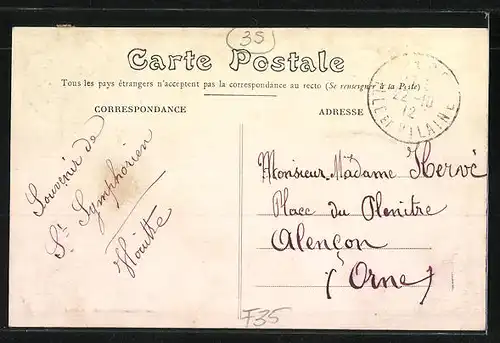 35
Carte Postale
Tous les pays étrangers n'acceptent pas la correspondance au recto (Se renseigner à la Poste)
CORRESPONDANCE
ADRESSE
22-10
12
ILLE ET VILAINE
Souvenir de
St Symphorien
Monsieur-Madame Hervé
Place du Plenitre
Alençon
(Orne)
F35